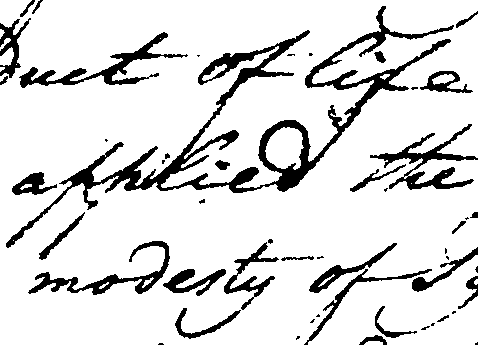 duct of life
applied the
modesty of